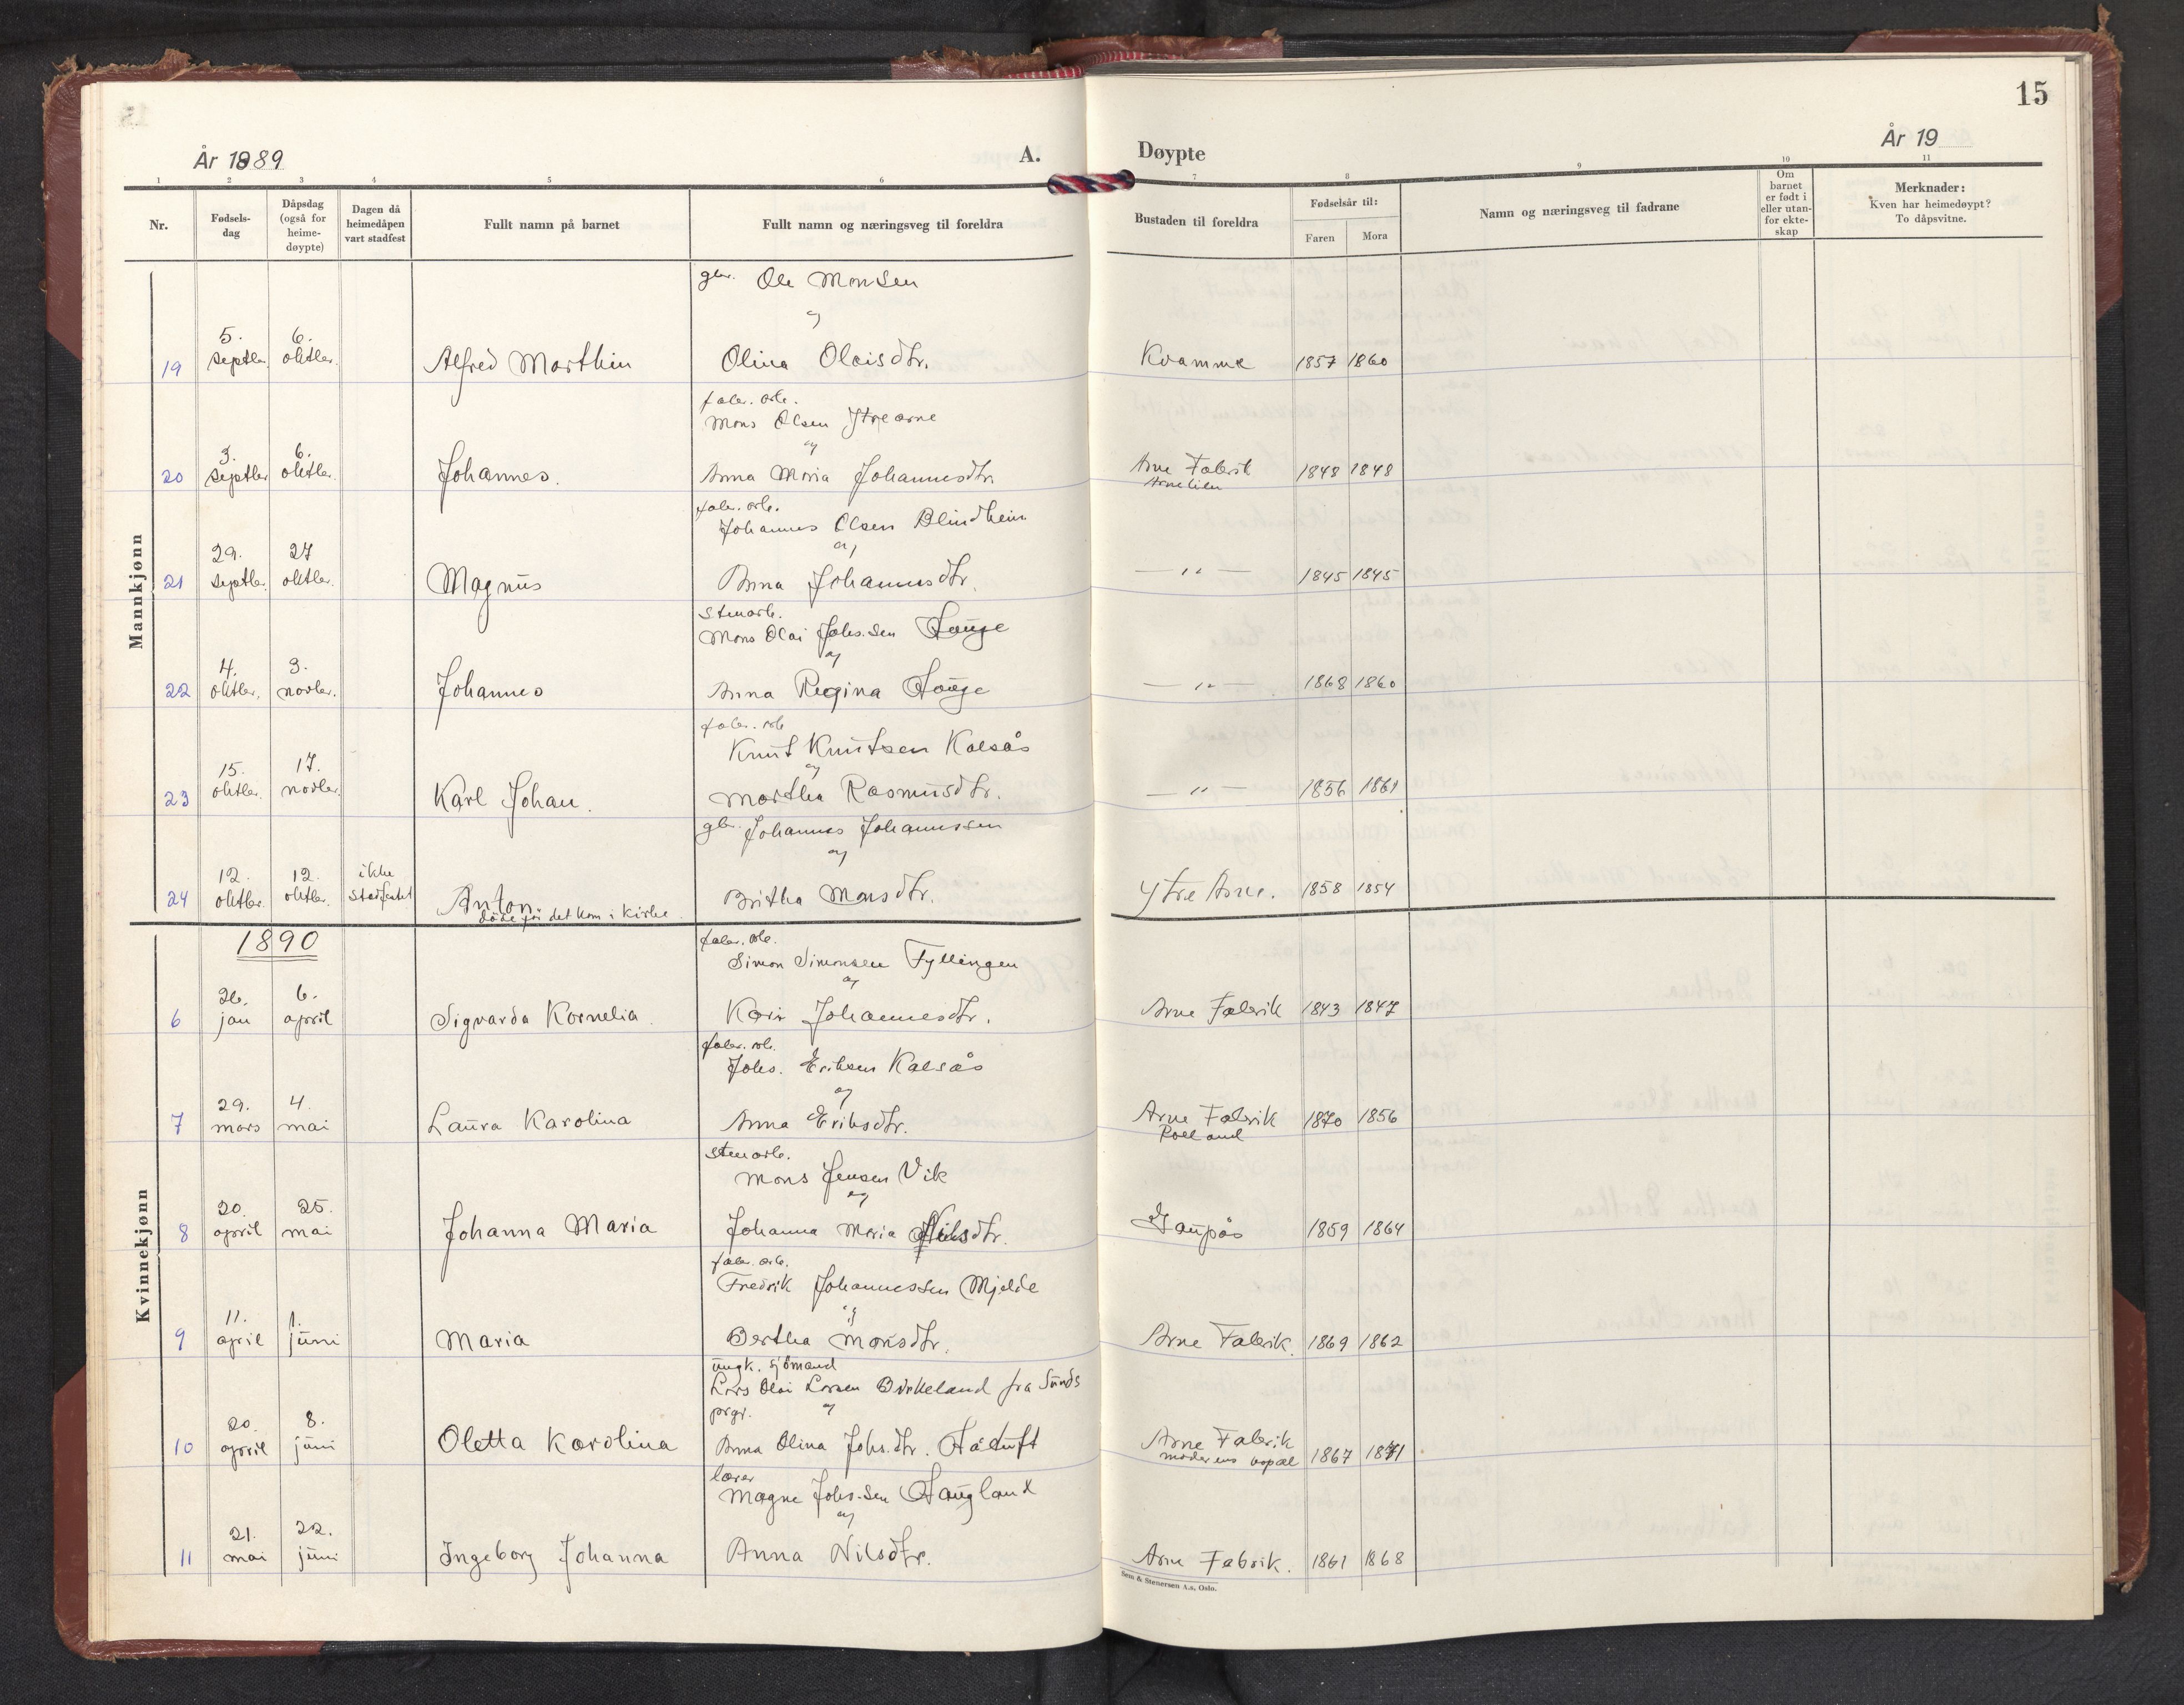 15
År 1889
A.
Døypte
År 19
1 2 3 4 5 6 7 8 9 10 11
Nr.
Fødsels-
dag
Dåpsdag
(også for
heime-
døypte)
Dagen då
heimedåpen
vart stadfest
Fullt namn på barnet
Fullt namn og næringsveg til foreldra
Bustaden til foreldra
Fødselsår til:
Faren
Mora
Namn og næringsveg til fadrane
Om
barnet
er født i
eller utan-
for ekte-
skap
Merknader:
Kven har heimedøypt?
To dåpsvitne.
Mannkjønn
gbr. Ole Monsen
og
5. 6.
19 septbr. oktbr. Alfred Marthin Olina Olaisdtr. Kvamme 1857 1860
fabr. arb.
Mons Olsen Ytre arne
og
3. 6.
20 septbr oktbr. Johannes. Anna Maria Johannesdtr. Arne Fabrik 1848 1848
Arnelien
fabr. arb.
Johannes Olsen Blindheim
og
29. 27
21 septbr. oktbr. Magnus Anna Johannesdtr. — " — 1845 1845
stenarb.
Mons Olai Johs.sen Hauge
og
4. 3.
22 oktbr. novbr. Johannes Anna Regina Hauge — " — 1868 1860
fabr. arb
Knut Knutsen Kalsås
og
15. 17.
23 oktbr. novbr. Karl Johan. Martha Rasmusdtr. — " — 1856 1861
gbr. Johannes Johannessen
og
12. 12. ikke
24 oktbr. oktbr. stadfestet Anton. Britha Monsdtr. Ytre Arne. 1858 1854
døde før det kom i kirke.
Kvinnekjønn
1890
fabr. arb.
Simon Simonsen Fyllingen
og
26. 6.
6 jan april Sigvarda Kornelia Kari Johannesdtr. Arne Fabrik 1843 1847
fabr. arb.
Johs. Eriksen Kalsås
og
29. 4.
7 mars mai Laura Karolina Anna Eriksdtr. Arne Fabrik 1870 1856
stenarb.
Mons Jensen Vik
og
20. 25.
8 april mai Johanna Maria Johanna Maria Nilsdtr. Gaupås 1859 1864
fabr. arb.
Fredrik Johannessen Mjelde
og
11. 1.
9 april juni Maria Bertha Monsdtr. Arne Fabrik. 1869 1862
ungk. sjömand
Lars Olai Larsen Birkeland fra Sunds
prgj. og
20. 8.
10 april juni Oletta Karolina Anna Olina Johs.dtr. Arne Fabrik 1867 1871
moderens
lærer
Magne Johs.sen Haugland
og
21. 22.
11 mai juni Ingeborg Johanna Anna Nilsdtr. Arne Fabrik. 1861 1868
Sem & Stenersen A.s, Oslo.